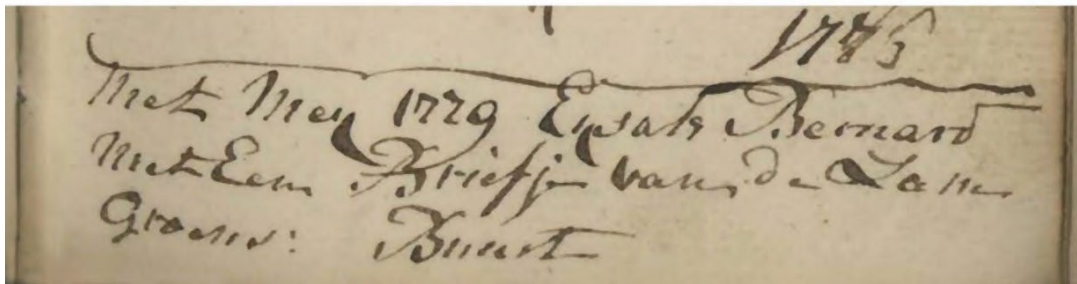 1775
Met Mey 1779 Eysak Bernard
Met Een Briefje van de Lan
Groen: Buurt